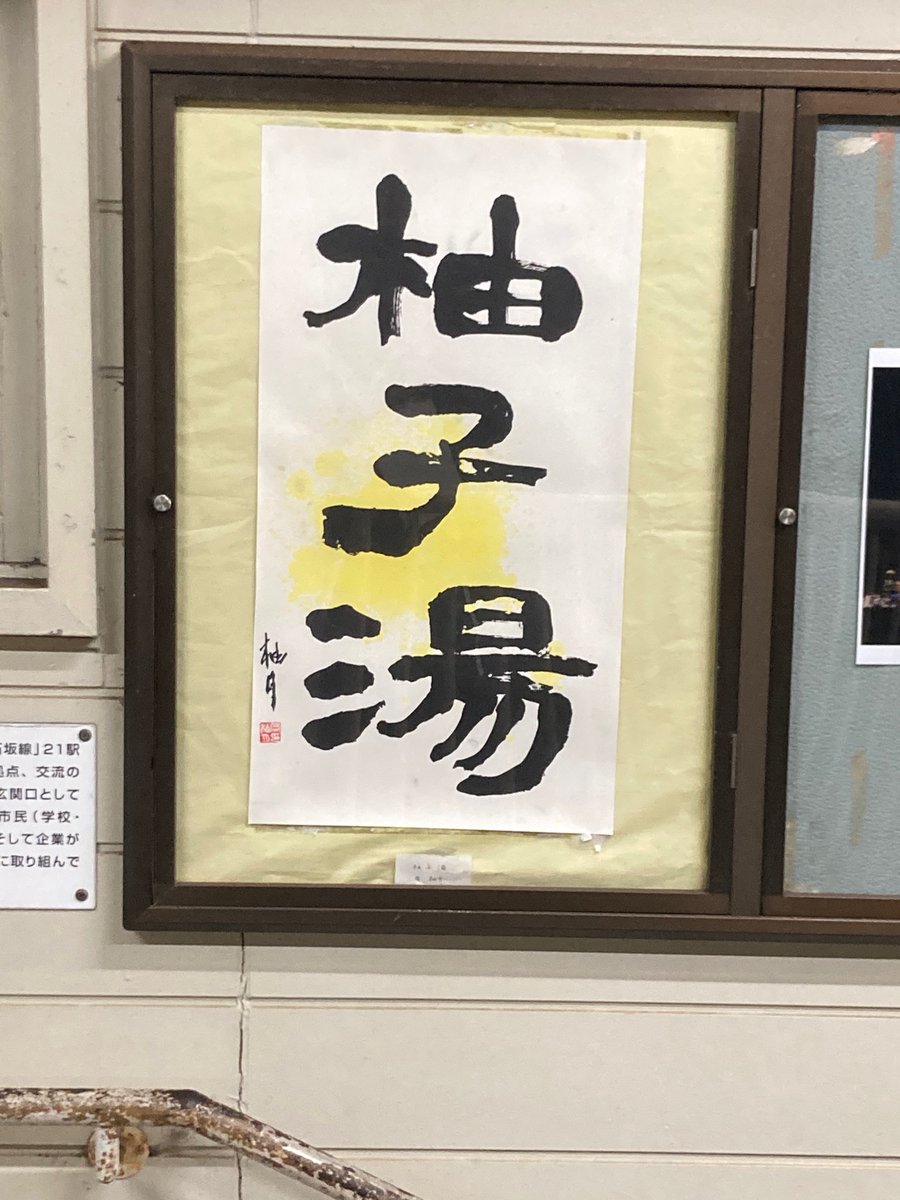 柚子湯
柚月
石坂線」21駅
拠点、交流の
玄関口として
市民（学校・
そして企業が
に取り組んで